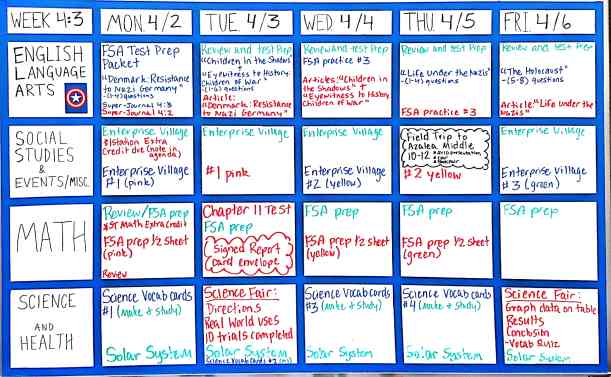 WEEK 4:3
MON. 4/2
TUE. 4/3
WED 4/4
THU. 4/5
FRI. 4/6
ENGLISH
LANGUAGE
ARTS
FSA Test Prep
Packet
"Denmark: Resistance
to Nazi Germany"
-(1-4) questions
Super-Journal 4:3
Super-Journal 4:2
Review and test Prep
"Children in the Shadows"
"Eyewitness to History:
Children of War"
-(1-6) questions
Article:
"Denmark: Resistance
to Nazi Germany"
Review and test Prep
FSA practice #3
Articles: "Children in
the Shadows" +
"Eyewitness to History
Children of War"
Review and test Prep
"Life Under the Nazis"
-(1-4) questions
FSA practice #3
Review and test Prep
"The Holocaust"
-(5-8) questions
Article: "Life under the
Nazis"
SOCIAL
STUDIES
&
EVENTS/MISC.
Enterprise Village
*1 Station Extra
Credit due (note in
agenda)
Enterprise Village
#1 (pink)
Enterprise Village
#1 pink
Enterprise Village
Enterprise Village
#2 (yellow)
Field Trip to
Azalea Middle
10-12
#2 yellow
Enterprise Village
Enterprise Village
#3 (green)
MATH
Review/FSA prep
*ST Math Extra Credit
FSA prep 1/2 sheet
(pink)
Review
Chapter 11 Test
FSA prep
Signed Report
Card envelope
FSA prep
FSA prep 1/2 sheet
(yellow)
FSA prep
FSA prep 1/2 sheet
(green)
FSA prep
SCIENCE
AND
HEALTH
Science Vocab cards
#1 (make + study)
Solar System
Science Fair:
Directions
Real World uses
10 trials completed
Solar System
Science Vocab cards #2
Science Vocab cards
#3 (make + study)
Solar System
Science Vocab cards
#4 (make + study)
Solar System
Science Fair:
Graph data on table
Results
Conclusion
-Vocab Quiz
Solar System